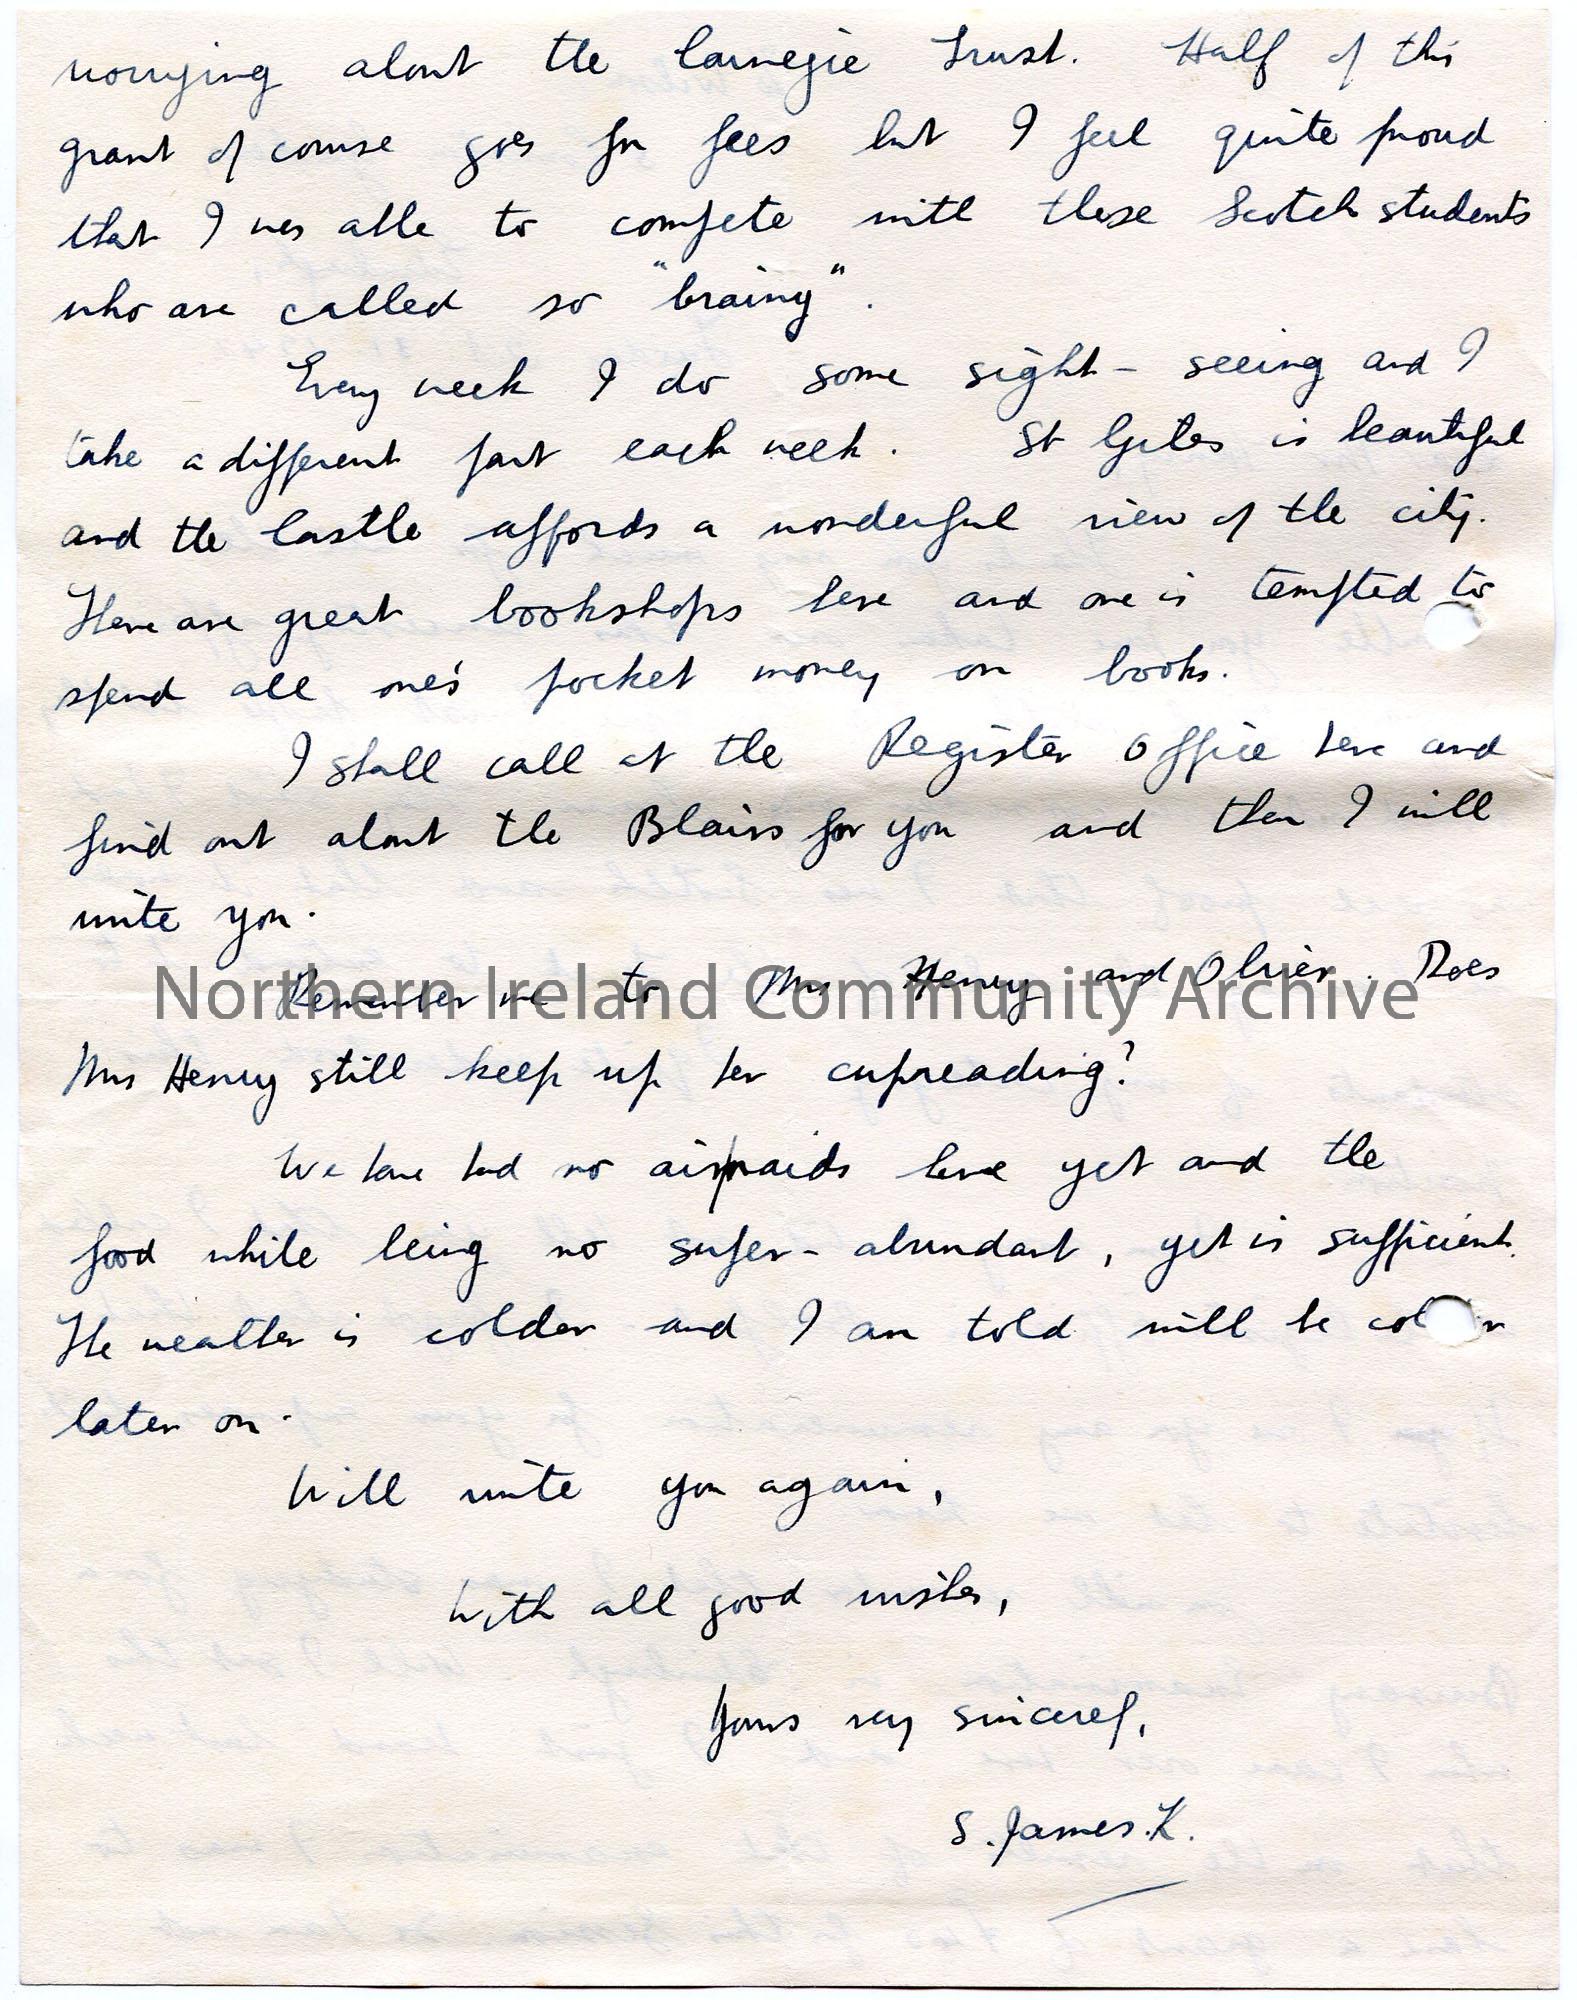 worrying about the Carnegie Trust. Half of this
grant of course goes for fees but I feel quite proud
that I was able to compete with these Scotch students
who are called so "brainy".
Every week I do some sight-seeing and I
take a different part each week. St Giles is beautiful
and the Castle affords a wonderful view of the city.
There are great bookshops here and one is tempted to
spend all one's pocket money on books.
I shall call at the Register Office here and
find out about the Blairs for you and then I will
write you.
Remember me to Mrs Henry and Olivier. Does
Northern Ireland Community Archive
Mrs Henry still keep up her cupreading?
We have had no air raids here yet and the
food while being no super-abundant, yet is sufficient.
The weather is colder and I am told will be
later on.
Will write you again,
With all good wishes,
Yours very sincerely,
S. James. K.